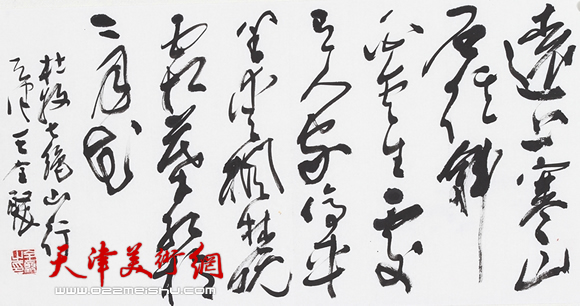 遠上寒山
石徑斜
白雲生處
有人家停車
坐愛楓林晚
霜葉紅於
二月花
杜牧七絕山行
天津王全聚
天津美術網
www.022meishu.com